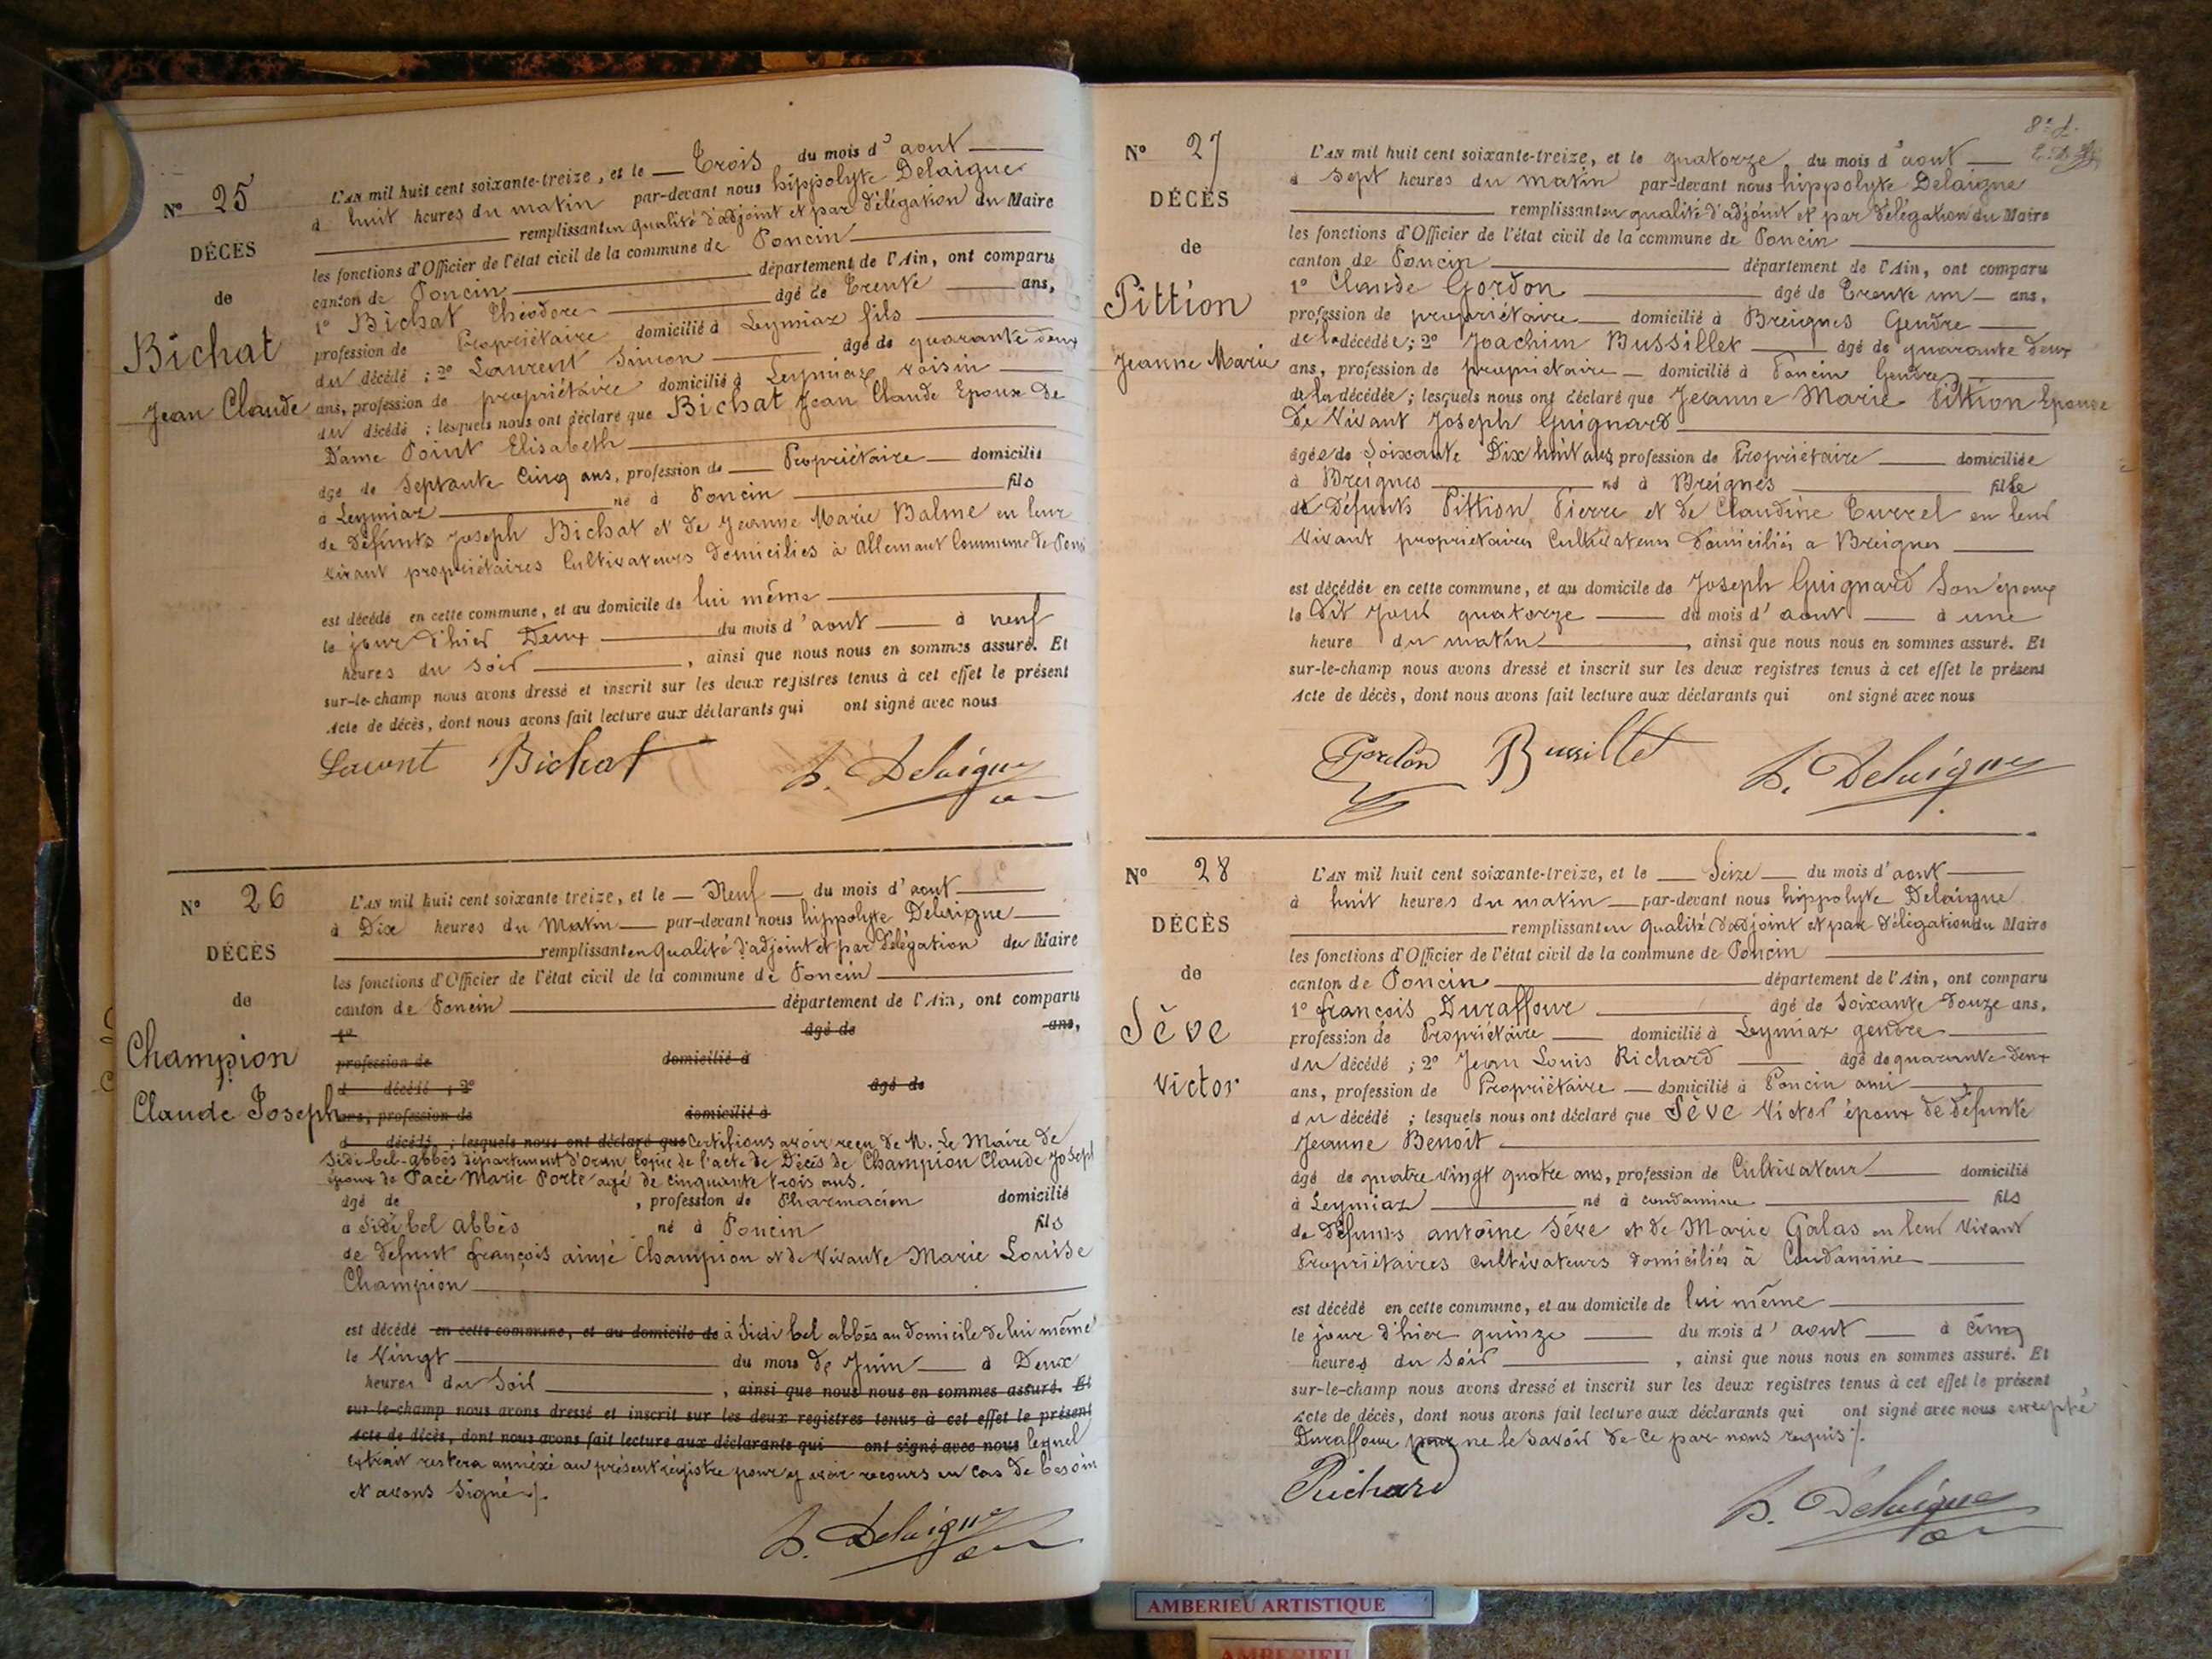 Nº 25
DÉCÈS
de
Bichat
Jean Claude
L'AN mil huit cent soixante-treize, et le Trois du mois d'aout
à huit heures du matin par-devant nous hippolyte Delaigue
remplissant en qualité d'adjoint et par délégation du Maire
les fonctions d'Officier de l'état civil de la commune de Poncin
canton de Poncin département de l'Ain, ont comparu
1º Bichat Théodore âgé de Trente ans,
profession de Propriétaire domicilié à Leymiaz fils
du décédé ; 2º Laurent Simon âgé de quarante deux
ans, profession de propriétaire domicilié à Leymiaz voisin
du décédé ; lesquels nous ont déclaré que Bichat Jean Claude Epoux de
Dame Point Elisabeth
âgé de Septante Cinq ans, profession de Propriétaire domicilié
à Leymiaz né à Poncin fils
de défunts Joseph Bichat et de Jeanne Marie Balme en leur
vivant propriétaires Cultivateurs domiciliés à Allemant Commune de
est décédé en cette commune, et au domicile de lui même
le jour d'hier Deux du mois d'aout à neuf
heures du soir , ainsi que nous nous en sommes assuré. Et
sur-le-champ nous avons dressé et inscrit sur les deux registres tenus à cet effet le présent
Acte de décès, dont nous avons fait lecture aux déclarants qui ont signé avec nous
Laurent Bichat h. Delaigue
Nº 26
DÉCÈS
de
Champion
Claude Joseph
L'AN mil huit cent soixante treize, et le Neuf du mois d'aout
à Dix heures du Matin par-devant nous hippolyte Delaigue
remplissant en Qualité d'adjoint et par délégation du Maire
les fonctions d'Officier de l'état civil de la commune de Poncin
canton de Poncin département de l'Ain, ont comparu
1º âgé de ans,
profession de domicilié à
d décédé ; 2º âgé de
ans, profession de domicilié à
d décédé, ; lesquels nous ont déclaré que Certifions avoir reçu de M. Le Maire de
Sidi-bel-abbès département d'oran Copie de l'acte de Décès de Champion Claude Joseph
époux de Pacé Marie Porte agé de cinquante trois ans.
âgé de , profession de Pharmacien domicilié
à Sidi bel abbès né à Poncin fils
de defunt françois aimé Champion et de Vivante Marie Louise
Champion
est décédé en cette commune, et au domicile de à Sidi bel abbès au domicile de lui même
le Vingt du mois de Juin à Deux
heures du Soir , ainsi que nous nous en sommes assuré. Et
sur-le-champ nous avons dressé et inscrit sur les deux registres tenus à cet effet le présent
Acte de décès, dont nous avons fait lecture aux déclarants qui ont signé avec nous lequel
Extrait restera annéxé au présent régistre pour y avoir recours en cas de besoin
et avons signé ./.
h. Delaigue
8e f.
Nº 27
DÉCÈS
de
Pittion
Jeanne Marie
L'AN mil huit cent soixante-treize, et le quatorze du mois d'aout
à Sept heures du matin par-devant nous hippolyte Delaigue
remplissant en qualité d'adjoint et par délégation du Maire
les fonctions d'Officier de l'état civil de la commune de Poncin
canton de Poncin département de l'Ain, ont comparu
1º Claude Gordon âgé de Trente un ans,
profession de propriétaire domicilié à Breignes Gendre
de la décédée ; 2º Joachim Bussillet âgé de quarante deux
ans, profession de propriétaire domicilié à Poncin Gendre
de la décédée ; lesquels nous ont déclaré que Jeanne Marie Pittion Epouse
De Vivant Joseph Guignard
âgée de Soixante Dix huit ans, profession de Propriétaire domiciliée
à Breignes né à Breignes fille
de Défunts Pittion Pierre et de Claudine Turrel en leur
vivant propriétaires Cultivateurs domiciliés a Breignes
est décédée en cette commune, et au domicile de Joseph Guignard Son époux
le Dit jour quatorze du mois d'aout à une
heure du matin , ainsi que nous nous en sommes assuré. Et
sur-le-champ nous avons dressé et inscrit sur les deux registres tenus à cet effet le présent
Acte de décès, dont nous avons fait lecture aux déclarants qui ont signé avec nous
Gordon Bussillet h. Delaigue
Nº 28
DÉCÈS
de
Sève
Victor
L'AN mil huit cent soixante-treize, et le Seize du mois d'aout
à huit heures du matin par-devant nous hippolyte Delaigue
remplissant en qualité d'adjoint et par délégation du Maire
les fonctions d'Officier de l'état civil de la commune de Poncin
canton de Poncin département de l'Ain, ont comparu
1º françois Duraffour âgé de Soixante Douze ans,
profession de Propriétaire domicilié à Leymiaz gendre
du décédé ; 2º Jean Louis Richard âgé de quarante Deux
ans, profession de Propriétaire domicilié à Poncin ami
du décédé ; lesquels nous ont déclaré que Sève Victor époux de défunte
Jeanne Benoit
âgé de quatre vingt quatre ans, profession de Cultivateur domicilié
à Leymiaz né à condamine fils
de Défunts antoine Sève et de Marie Galas en leur vivant
Propriétaires cultivateurs domiciliés à Condamine
est décédé en cette commune, et au domicile de lui même
le jour d'hier quinze du mois d'aout à Cinq
heures du Soir , ainsi que nous nous en sommes assuré. Et
sur-le-champ nous avons dressé et inscrit sur les deux registres tenus à cet effet le présent
Acte de décès, dont nous avons fait lecture aux déclarants qui ont signé avec nous excepté
Duraffour pour ne le savoir de ce par nous requis ./.
Richard h. Delaigue
AMBERIEU ARTISTIQUE
AMBERIEU